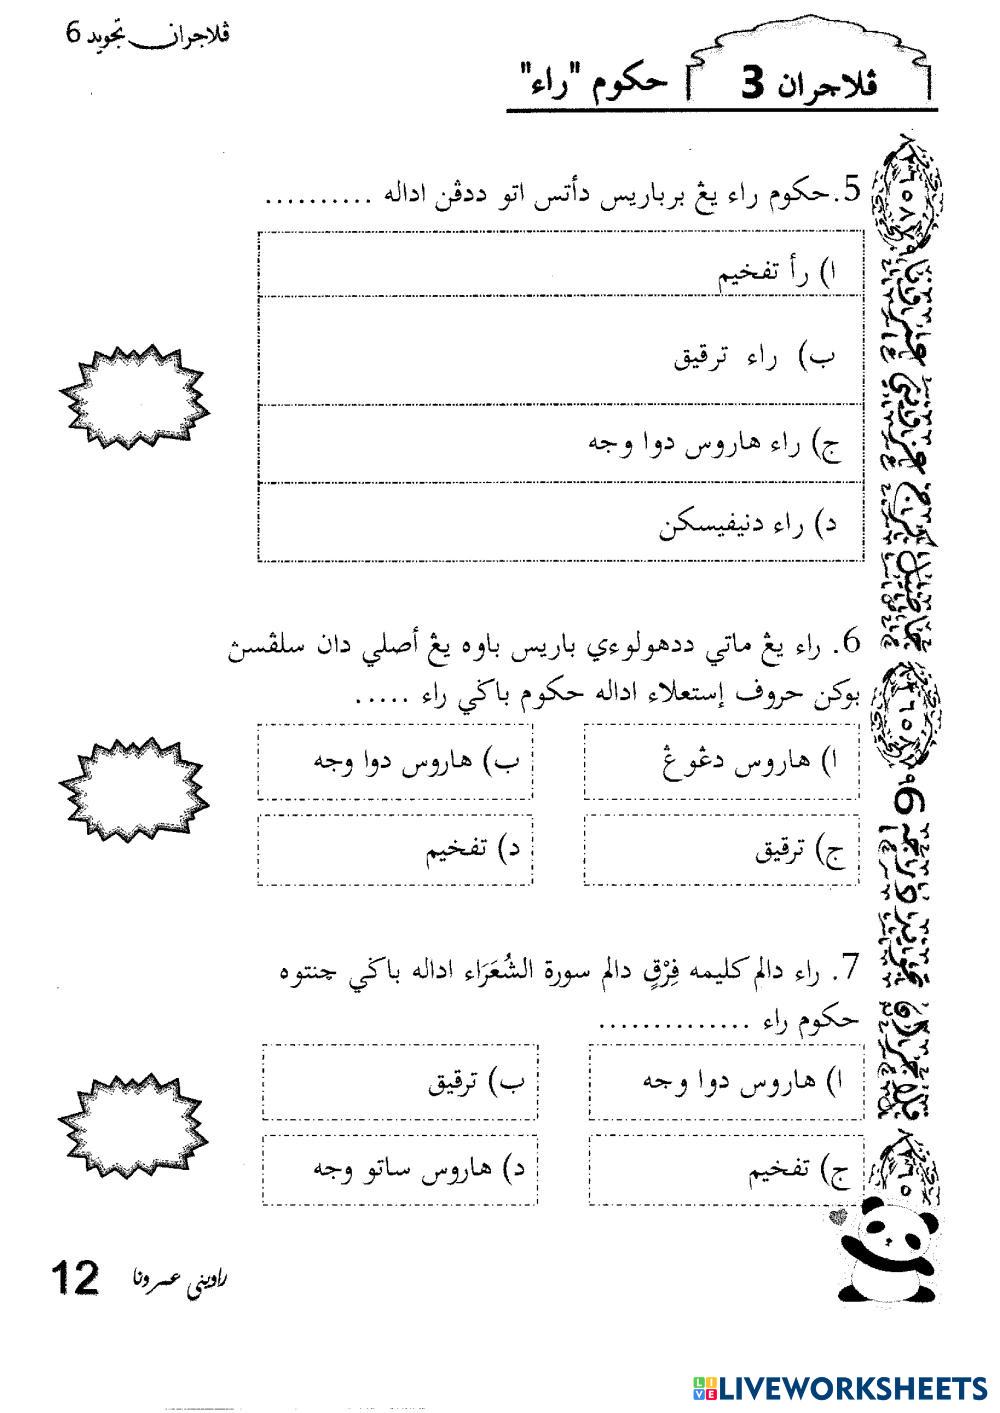 ڤلاجران تجويد 6
ڤلاجران 3 حكوم "راء"
5.حكوم راء يڠ برباريس دأتس اتو ددڤن اداله ..........
ا) رأ تفخيم
ب) راء ترقيق
ج) راء هاروس دوا وجه
د) راء دنيفيسكن
6. راء يڠ ماتي ددهولوءي باريس باوه يڠ أصلي دان سلڤسڽ
بوكن حروف إستعلاء اداله حكوم باݢي راء .....
ا) هاروس دڠوڠ
ب) هاروس دوا وجه
ج) ترقيق
د) تفخيم
7. راء دالم كليمه فِرْقٍ دالم سورة الشُعَرَاء اداله باݢي چنتوه
حكوم راء ..............
ا) هاروس دوا وجه
ب) ترقيق
ج) تفخيم
د) هاروس ساتو وجه
12
LIVEWORKSHEETS